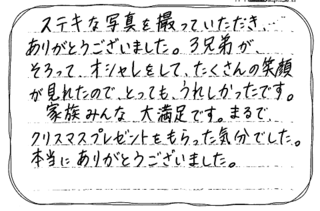 ステキな写真を撮っていただき
ありがとうございました。3兄弟が、
そろって、オシャレをして、たくさんの笑顔
が見れたので、とっても、うれしかったです。
家族みんな 大満足です。まるで、
クリスマスプレゼントをもらった気分でした。
本当に ありがとうございました。